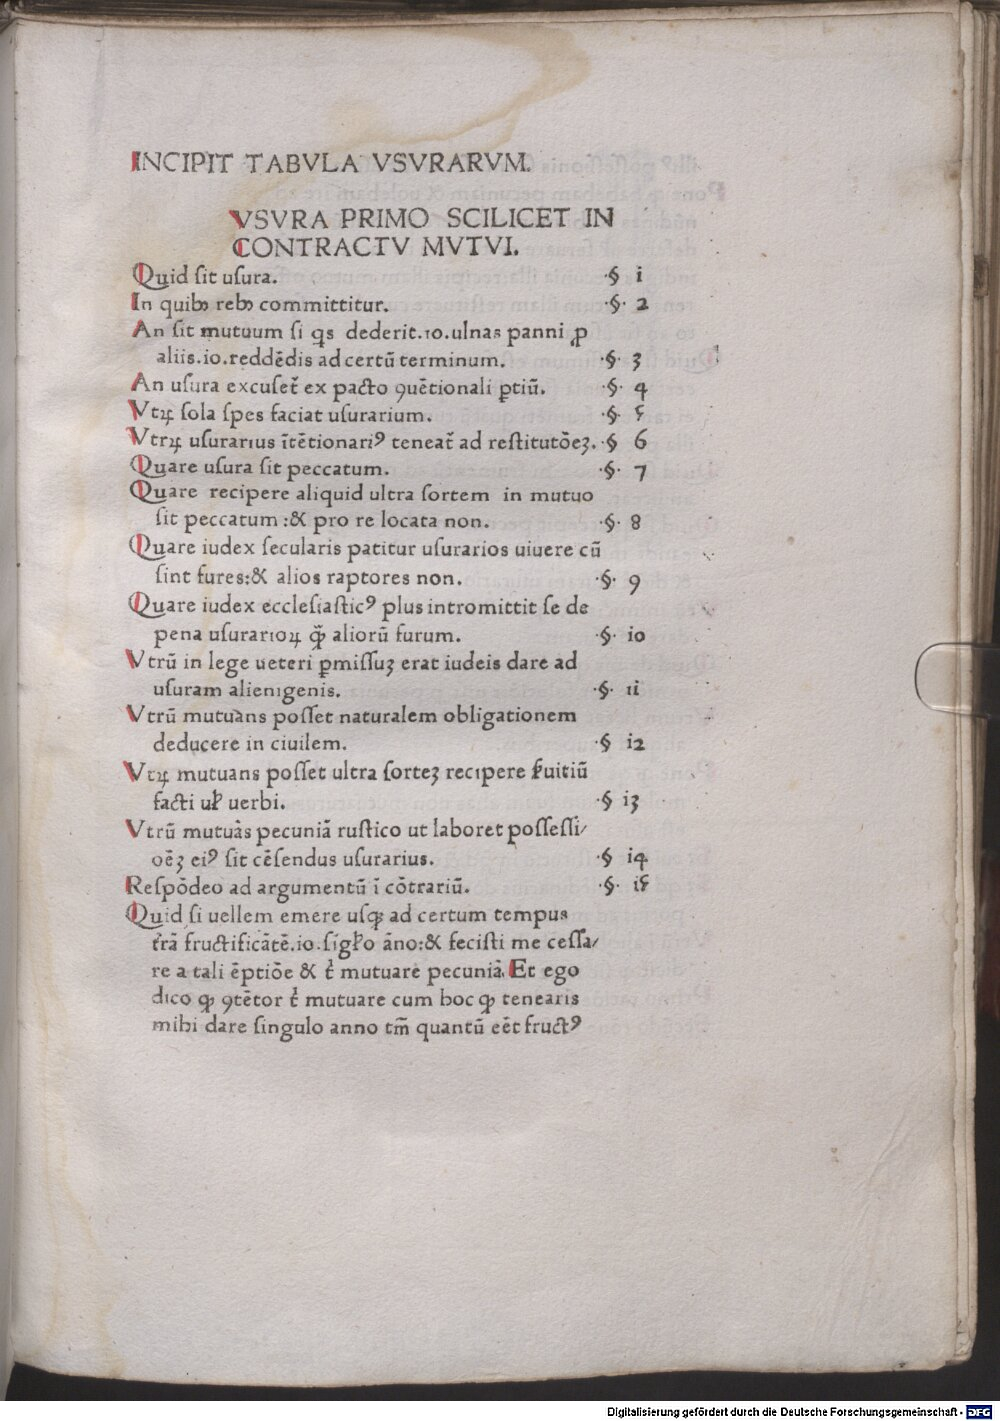 INCIPIT TABVLA VSVRARVM.
VSVRA PRIMO SCILICET IN
CONTRACTV MVTVI.
Quid sit usura. .§ i
In quibꝫ rebꝫ committitur. .§. 2
An sit mutuum si qs dederit.10.ulnas panni ꝓ
aliis.io.reddẽdis ad certũ terminum. .§. 3
An usura excuset᷑ ex pacto ꝯuẽtionali ꝑtiũ. .§. 4
Vtꝝ sola spes faciat usurarium. .§. 5
Vtrꝝ usurarius ĩtẽtionariꝰ teneat᷑ ad restitutõeꝫ. .§ 6
Quare usura sit peccatum. .§. 7
Quare recipere aliquid ultra sortem in mutuo
sit peccatum :& pro re locata non. .§. 8
Quare iudex secularis patitur usurarios uiuere cũ
sint fures:& alios raptores non. .§. 9
Quare iudex ecclesiasticꝰ plus intromittit se de
pena usurarioꝝ q̃ᷓ aliorũ furum. .§. io
Vtrũ in lege ueteri ꝑmissuꝫ erat iudeis dare ad
usuram alienigenis. .§. ii
Vtrũ mutuans posset naturalem obligationem
deducere in ciuilem. .§ i2
Vtꝝ mutuans posset ultra sorteꝫ recipere ẜuitiũ
facti ul̓ uerbi. .§ i3
Vtrũ mutuãs pecuniã rustico ut laboret possessi/
oẽꝫ eiꝰ sit cẽsendus usurarius. .§ i4
Respõdeo ad argumentũ ĩ cõtrariũ. .§. i5
Quid si uellem emere usqꝫ ad certum tempus
t̃rã fructificãtẽ.io.sĩgl̓o ãno:& fecisti me cessa/
re a tali ẽptiõe & t̓ mutuare pecuniã. Et ego
dico ꝙ ꝯtẽtor t̓ mutuare cum hoc ꝙ tenearis
mihi dare singulo anno tm̃ quantũ eẽt fructꝰ
Digitalisierung gefördert durch die Deutsche Forschungsgemeinschaft - DFG